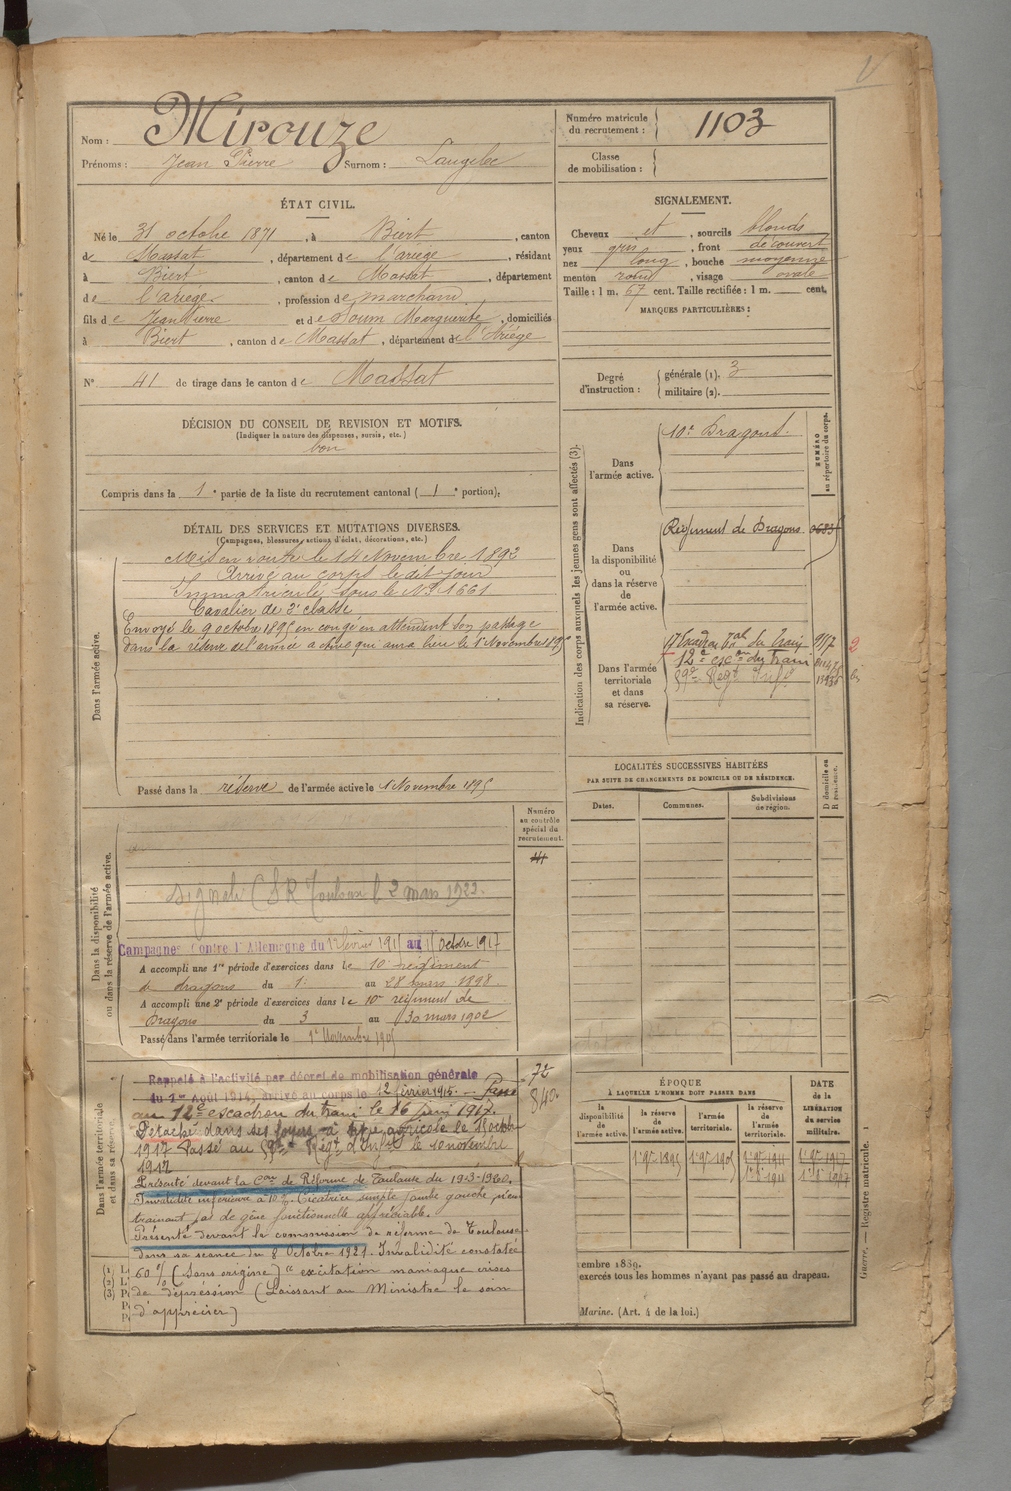 Nom : Mirouze
Prénoms : Jean Pierre Surnom : Laugelec
Numéro matricule du recrutement : 1103
Classe de mobilisation :
ÉTAT CIVIL.
Né le 31 octobre 1871, à Biert, canton
de Massat, département de l'ariège, résidant
à Biert, canton de Massat, département
de l'ariège, profession de marchand
fils de Jean Pierre et de Soum Marguerite, domiciliés
à Biert, canton de Massat, département de l'Ariège
N° 41 de tirage dans le canton de Massat
SIGNALEMENT.
Cheveux et, sourcils blonds
yeux gris, front découvert
nez long, bouche moyenne
menton rond, visage ovale
Taille : 1 m. 67 cent. Taille rectifiée : 1 m. cent.
MARQUES PARTICULIÈRES :
Degré d'instruction : générale (1). 3
militaire (2).
DÉCISION DU CONSEIL DE REVISION ET MOTIFS.
(Indiquer la nature des dispenses, sursis, etc.)
bon
Compris dans la 1e partie de la liste du recrutement cantonal (1e portion).
DÉTAIL DES SERVICES ET MUTATIONS DIVERSES.
(Campagnes, blessures, actions d'éclat, décorations, etc.)
Dans l'armée active.
Mis en route le 14 Novembre 1892
Arrivé au corps le dit jour
Immatriculé sous le N° 1661
Cavalier de 2e classe
Envoyé le 9 octobre 1895 en congé en attendant son passage
dans la réserve de l'armée active qui aura lieu le 1er Novembre 1895
Passé dans la réserve de l'armée active le 1 Novembre 1895
Indication des corps auxquels les jeunes gens sont affectés (3).
NUMÉRO au répertoire du corps.
Dans l'armée active.
10e Dragons.
Dans la disponibilité ou dans la réserve de l'armée active.
Régiment de Dragons
Dans l'armée territoriale et dans sa réserve.
17 Escadron du Train 9/17
12e escon du train
Régt Inf
LOCALITÉS SUCCESSIVES HABITÉES
PAR SUITE DE CHANGEMENTS DE DOMICILE OU DE RÉSIDENCE.
Dates. Communes. Subdivisions de région. D domicile ou R résidence.
Dans la disponibilité ou dans la réserve de l'armée active.
Numéro au contrôle spécial du recrutement.
41
signalé CSR Toulouse le 2 mars 1922.
Campagnes Contre l'Allemagne du 12 février 1915 au 15 Octobre 1917
A accompli une 1re période d'exercices dans le 10e régiment
de dragons du 1 au 28 mars 1898
A accompli une 2e période d'exercices dans le 10e régiment de
Dragons du 3 au 30 mars 1902
Passé dans l'armée territoriale le 1er Novembre 1905
Dans l'armée territoriale et dans sa réserve.
72
840
Rappelé à l'activité par décret de mobilisation générale
du 1er Août 1914, arrivé au corps le 12 février 1915. Passé
au 12e escadron du train le 16 juin 1917.
Détaché dans ses foyers à titre agricole le 15 octobre
1917 Passé au Régt d'Infie le 10 novembre
1917
Présenté devant la Con de Réforme de Toulouse du 19-3-1920.
Invalidité inférieure à 10 %. Cicatrice simple jambe gauche n'en
trainant pas de gêne fonctionnelle appréciable.
Présenté devant la commission de réforme de Toulouse
dans sa séance du 8 Octobre 1921. Invalidité constatée
60 % (Sans origine) "excitation maniaque crises
de dépression (Laissant au Ministre le soin
d'apprécier)
ÉPOQUE
À LAQUELLE L'HOMME DOIT PASSER DANS
la disponibilité de l'armée active.
la réserve de l'armée active.
l'armée territoriale.
la réserve de l'armée territoriale.
DATE de la LIBÉRATION du service militaire.
1er 9bre 1895 1er 9bre 1905 1er 9bre 1911 1er 9bre 1917
embre 1889.
exercés tous les hommes n'ayant pas passé au drapeau.
Marine. (Art. 4 de la loi.)
Guerre. — Registre matricule. 1